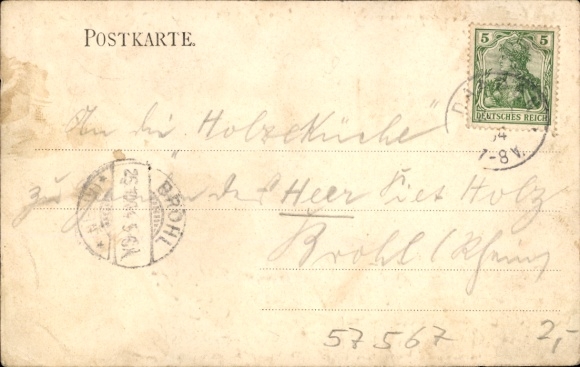 POSTKARTE.
5 5
DEUTSCHES REICH
04
7-8V.
An die „Holzeküche"
zu des Heer Piet Holz
Brohl (Rhein)
BROHL
57567 2,-